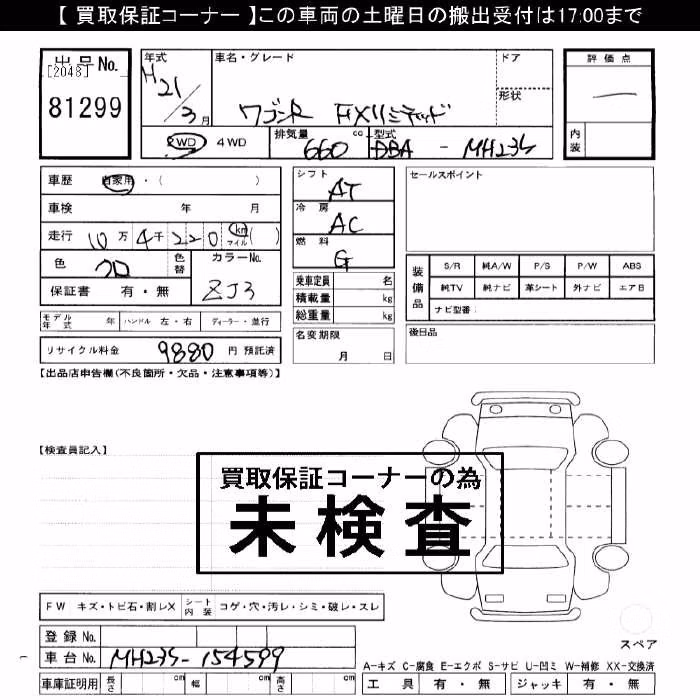 【 買取保証コーナー 】この車両の土曜日の搬出受付は17:00まで
出品No.
[2048]
81299
年式
H21/3月
車名・グレード
ワゴンR FXリミテッド
ドア
形状
評価点
内装
2WD 4WD
排気量
660 cc
型式
DBA - MH23S
車歴 自家用・( )
車検 年 月
走行 10万4千220 km マイル( )
色 クロ
色替
カラーNo.
ZJ3
保証書 有・無
シフト
AT
冷房
AC
燃料
G
セールスポイント
乗車定員 名
積載量 kg
総重量 kg
装備品
S/R 純A/W P/S P/W ABS
純TV 純ナビ 革シート 外ナビ エアB
ナビ型番:
モデル年式 年 ハンドル 左・右 ディーラー・並行
名変期限
月 日
後日品
リサイクル料金 9880 円 預託済
【出品店申告欄(不良箇所・欠品・注意事項等)】
【検査員記入】
買取保証コーナーの為
未検査
FW キズ・トビ石・割レX
シート内装 コゲ・穴・汚レ・シミ・破レ・スレ
登録No.
車台No. MH23S-154599
車庫証明用 長さ cm 幅 cm 高さ cm
スペア
A-キズ C-腐食 E-エクボ S-サビ U-凹ミ W-補修 XX-交換済
工具 有・無 ジャッキ 有・無